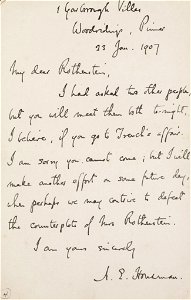 1 Yarborough Villas
Woodridings, Pinner
23 Jan. 1907
My dear Rothenstein,
I had asked two other people,
but you will meet them both to-night,
I believe, if you go to Trench's affair.
I am sorry you cannot come; but I will
make another effort on some future day,
when perhaps we may contrive to defeat
the counterplots of Mrs Rothenstein.
I am yours sincerely
A. E. Housman.